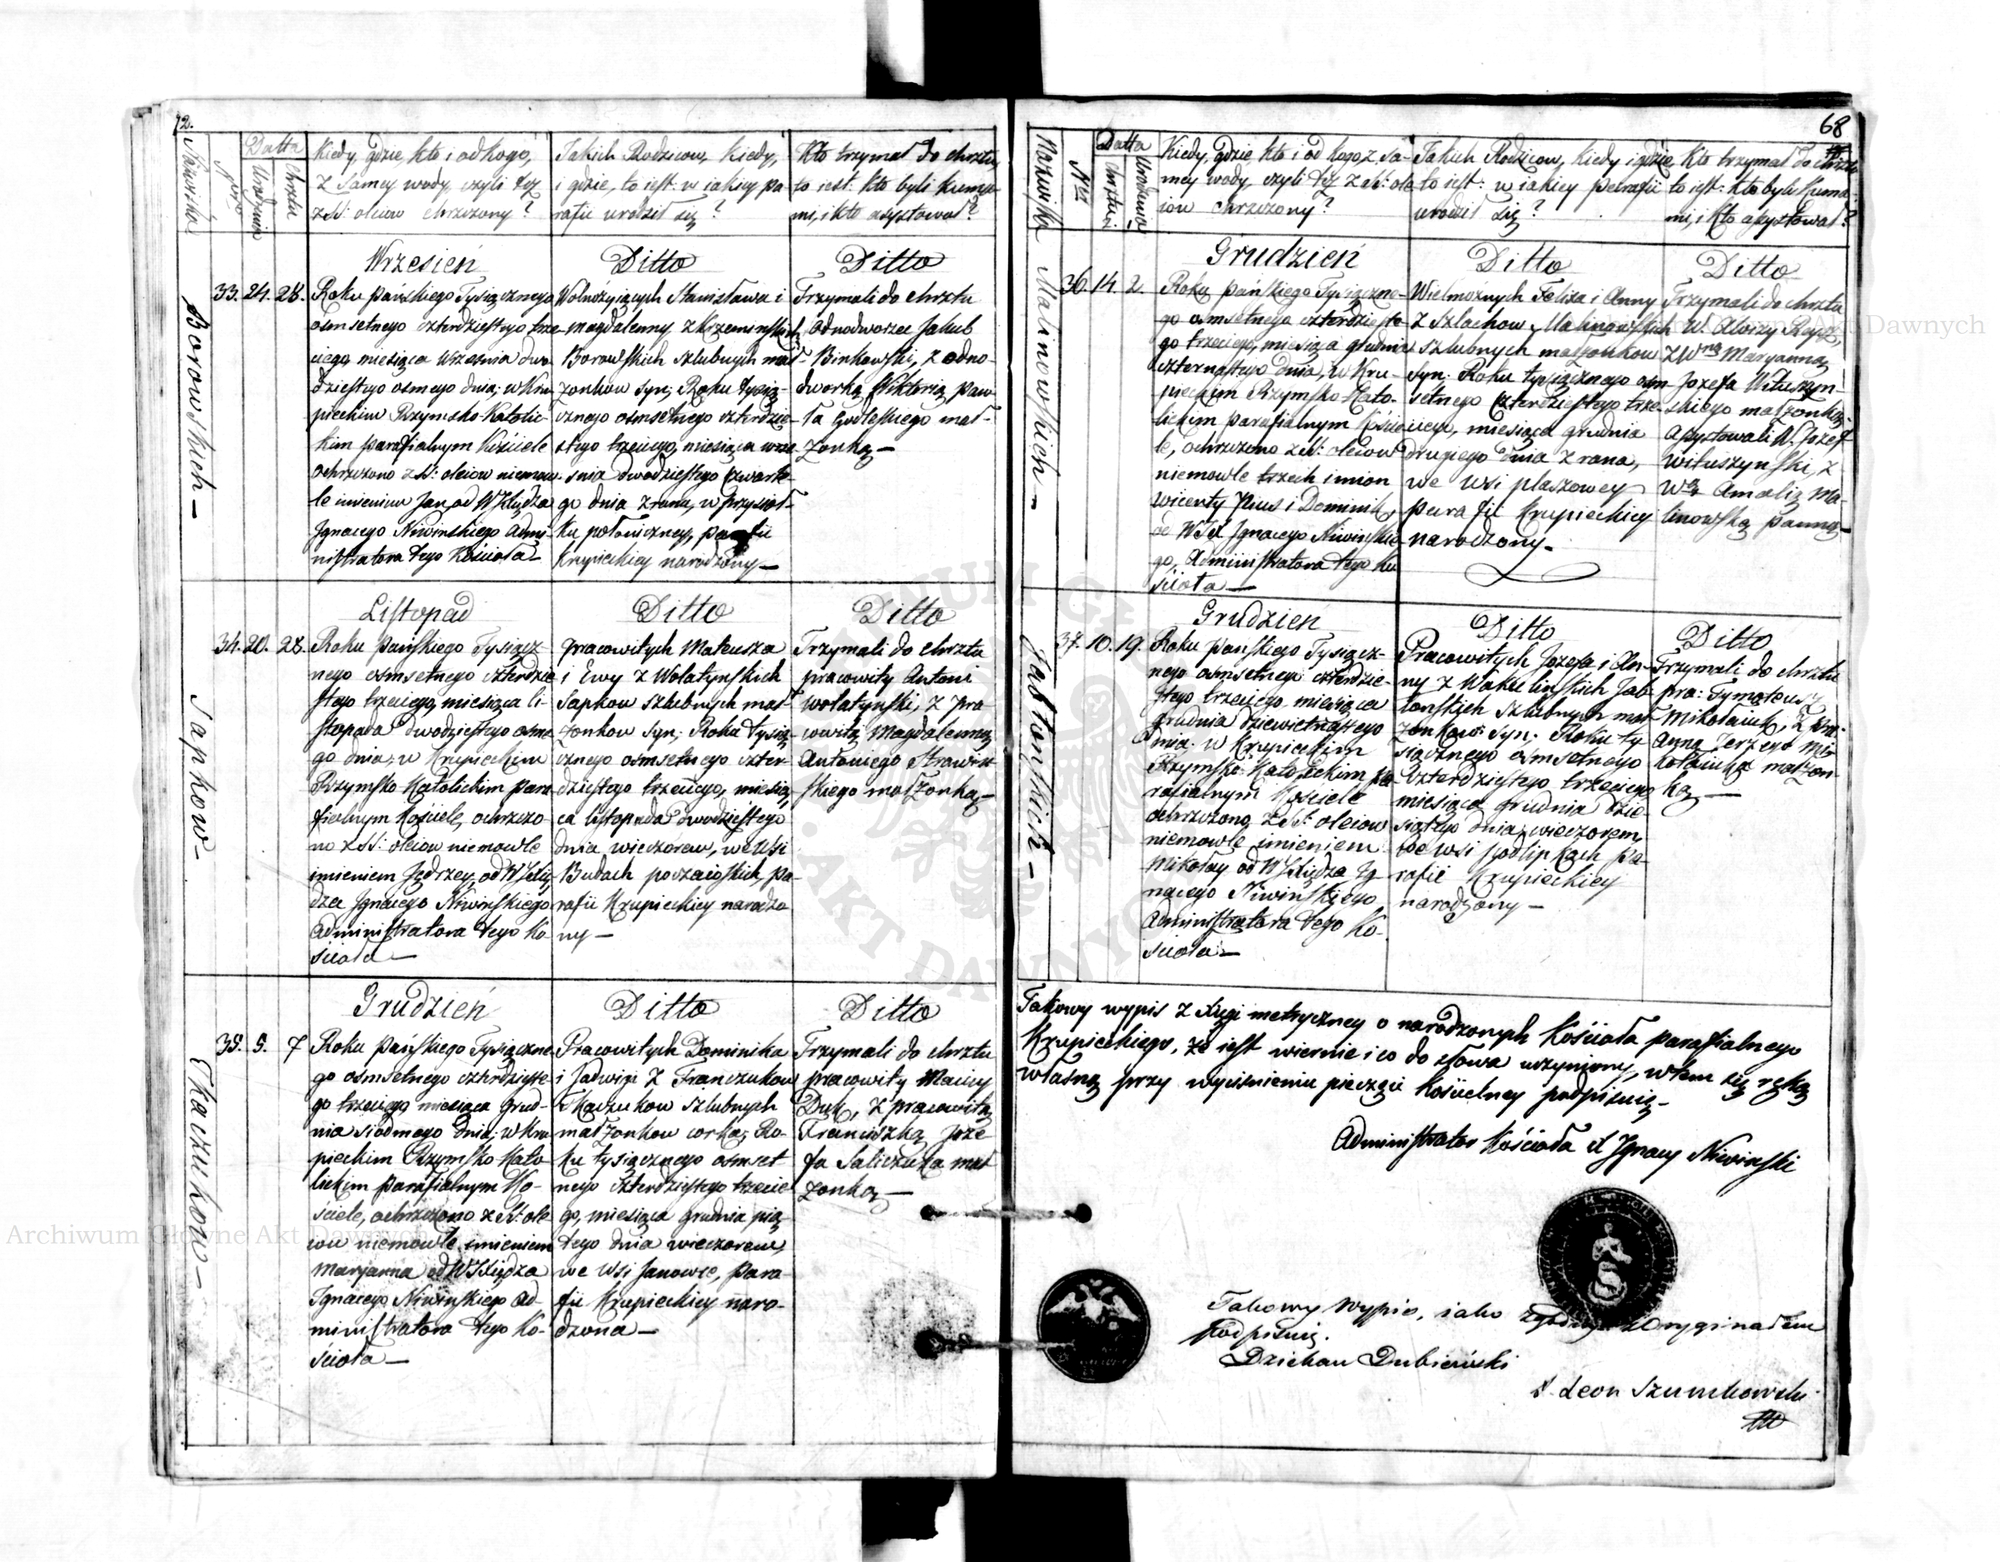 72.
Nazwiska
Nro
Datta
Urodzenia
Chrztu
Kiedy, gdzie, kto i od kogo,
z samey wody, czyli też
z SS: oleiow chrzczony?
Jakich Rodzicow, kiedy,
i gdzie, to iest: w iakiey pa
rafii urodził się?
Kto trzymał do chrztu,
to iest: kto byli kumo
mi, i kto asystował?
Borowskich —
33. 24. 28.
Wrzesień
Roku Pańskiego Tysiącznego
osmsetnego czterdziestego trze
ciego, miesiąca Września dwu
dziestego osmego dnia; w Kru
pieckim Rzymsko Katolic
kim parafialnym Kościele
ochrzczono z SS: oleiow niemow
le imieniem Jan, od W X Xiędza
Ignacego Niwinskiego Admi
nistratora tego Kościoła —
Ditto
Wolnożyiących Stanisława i
Magdalenny z Krzeminskich
Borowskich szlubnych mał
żonkow syn; Roku tysią
cznego osmsetnego czterdzie
stego trzeciego, miesiąca wrze
śnia dwudziestego czwarte
go dnia z rana, w przysioł
ku położniczney, parafii
Krupieckiey narodzony —
Ditto
Trzymali do chrztu
Odnodworzec Jakub
Binkowski, z odno-
dworką Wiktorią Paw
ła Godleskiego mał-
żonką —
Sapkow —
34. 20. 28.
Listopad
Roku Pańskiego Tysiącz
nego osmsetnego czterdzie
stego trzeciego, miesiąca li-
stopada dwudziestego osme
go dnia, w Krupieckim
Rzymsko Katolickim para
fialnym Kościele, ochrzczo
no z SS: oleiow niemowle
imieniem Jędrzey, od W Xię
dza Ignacego Niwinskiego
Administratora tego Ko-
ścioła —
Ditto
Pracowitych Mateusza
i Ewy z Wołatyńskich
Sapkow szlubnych mał
żonkow syn; Roku tysią
cznego osmsetnego czter-
dziestego trzeciego, miesią
ca listopada dwudziestego
dnia wieczorem, we wsi
Budach poczaiowskich, pa-
rafii Krupieckiey narodzo
ny —
Ditto
Trzymali do chrztu
pracowity Antoni
Wołatyński, z pra
cowitą Magdalenną
Antoniego Strawin
skiego małżonką —
Tkaczukow —
35. 5. 7
Grudzień
Roku Pańskiego Tysiączne
go osmsetnego czterdzieste
go trzeciego miesiąca Grud-
nia siodmego dnia; w Kru
pieckim Rzymsko Kato
lickim parafialnym Ko-
ściele, ochrzczono z SS: ole
iow niemowle imieniem
Maryanna od W Xiędza
Ignacego Niwinskiego Ad-
ministratora tego Ko-
ścioła —
Ditto
Pracowitych Dominika
i Jadwigi z Franczukow
Tkaczukow szlubnych
małżonkow corka; Ro-
ku tysiącznego osmset
nego czterdziestego trzecie
go, miesiąca grudnia pią
tego dnia wieczorem,
we wsi Janowce, para-
fii Krupieckiey naro-
dzona —
Ditto
Trzymali do chrztu
pracowity Maciey
Duk, z pracowitą
Franciszką Joze
fa Saliczuka mał
żonką —
68
Nazwiska
Nro
Datta
Chrztu
Urodzenia
Kiedy, gdzie, kto i od kogo, z sa-
mey wody, czyli też z SS: ole
iow chrzczony?
Jakich Rodzicow, kiedy i gdzie
to iest: w iakiey parafii
urodził się?
Kto trzymał do chrztu
to iest: kto byli kumo-
mi, i kto asystował?
Malinowskich —
36. 14. 2.
Grudzień
Roku Pańskiego Tysiączne-
go osmsetnego czterdzieste
go trzeciego, miesiąca grudnia
czternastego dnia, w Kru-
pieckim Rzymsko Kato-
lickim parafialnym Koście
le, ochrzczono z SS: oleiow
niemowle trzech imion
Wicenty Pius i Dominik,
od W JX Ignacego Niwinskie
go, Administratora tego Ko
ścioła —
Ditto
Wielmożnych Felixa i Anny
z Szlachow Malinowskich
szlubnych małżonkow
syn; Roku tysiącznego osm
setnego czterdziestego trze-
ciego, miesiąca grudnia
drugiego dnia z rana,
we wsi płaszowey
parafii Krupieckiey
narodzony —
Ditto
Trzymali do chrztu
W. Aloizy
z Wną Maryanną
Jozefa Wituszyn-
skiego małżonką;
Asystowali W. Jozef
Wituszyński, z
Wną Amalią Ma-
linowską panną —
Jabłonskich —
37. 10. 19.
Grudzień
Roku Pańskiego Tysiącz-
nego osmsetnego czterdzie-
stego trzeciego miesiąca
grudnia dziewietnastego
dnia, w Krupieckim
Rzymsko Katolickim pa
rafialnym Kościele
ochrzczono z SS: oleiow
niemowle imieniem
Mikołay od W Xiędza Ig
nacego Niwinskiego
Administratora tego Ko-
ścioła —
Ditto
Pracowitych Jozefa i An-
ny z Wakulinskich Jab
łonskich szlubnych mał
żonkow syn; Roku ty
siącznego osmsetnego
czterdziestego trzeciego
miesiąca grudnia dzie-
siątego dnia, wieczorem,
we wsi Podlipkach pa-
rafii Krupieckiey
narodzony —
Ditto
Trzymali do chrztu
pra: Tymoteusz
Mikołaiuk, z pra:
Anną Jerzego Mi
kołaiuka małżon
ką —
Takowy wypis z xięgi metryczney o narodzonych Kościoła parafialnego
Krupieckiego, że iest wiernie i co do słowa uczyniony, w tem się ręką
własną przy wyciśnieniu pieczęci kościelney podpisuię —
Administrator Kościoła X Ignacy Niwinski
Takowy wypis, iako zgodny z Oryginałem
podpisuię.
Dziekan Dubieński
X. Leon Szumkowski
Archiwum Główne Akt Dawnych